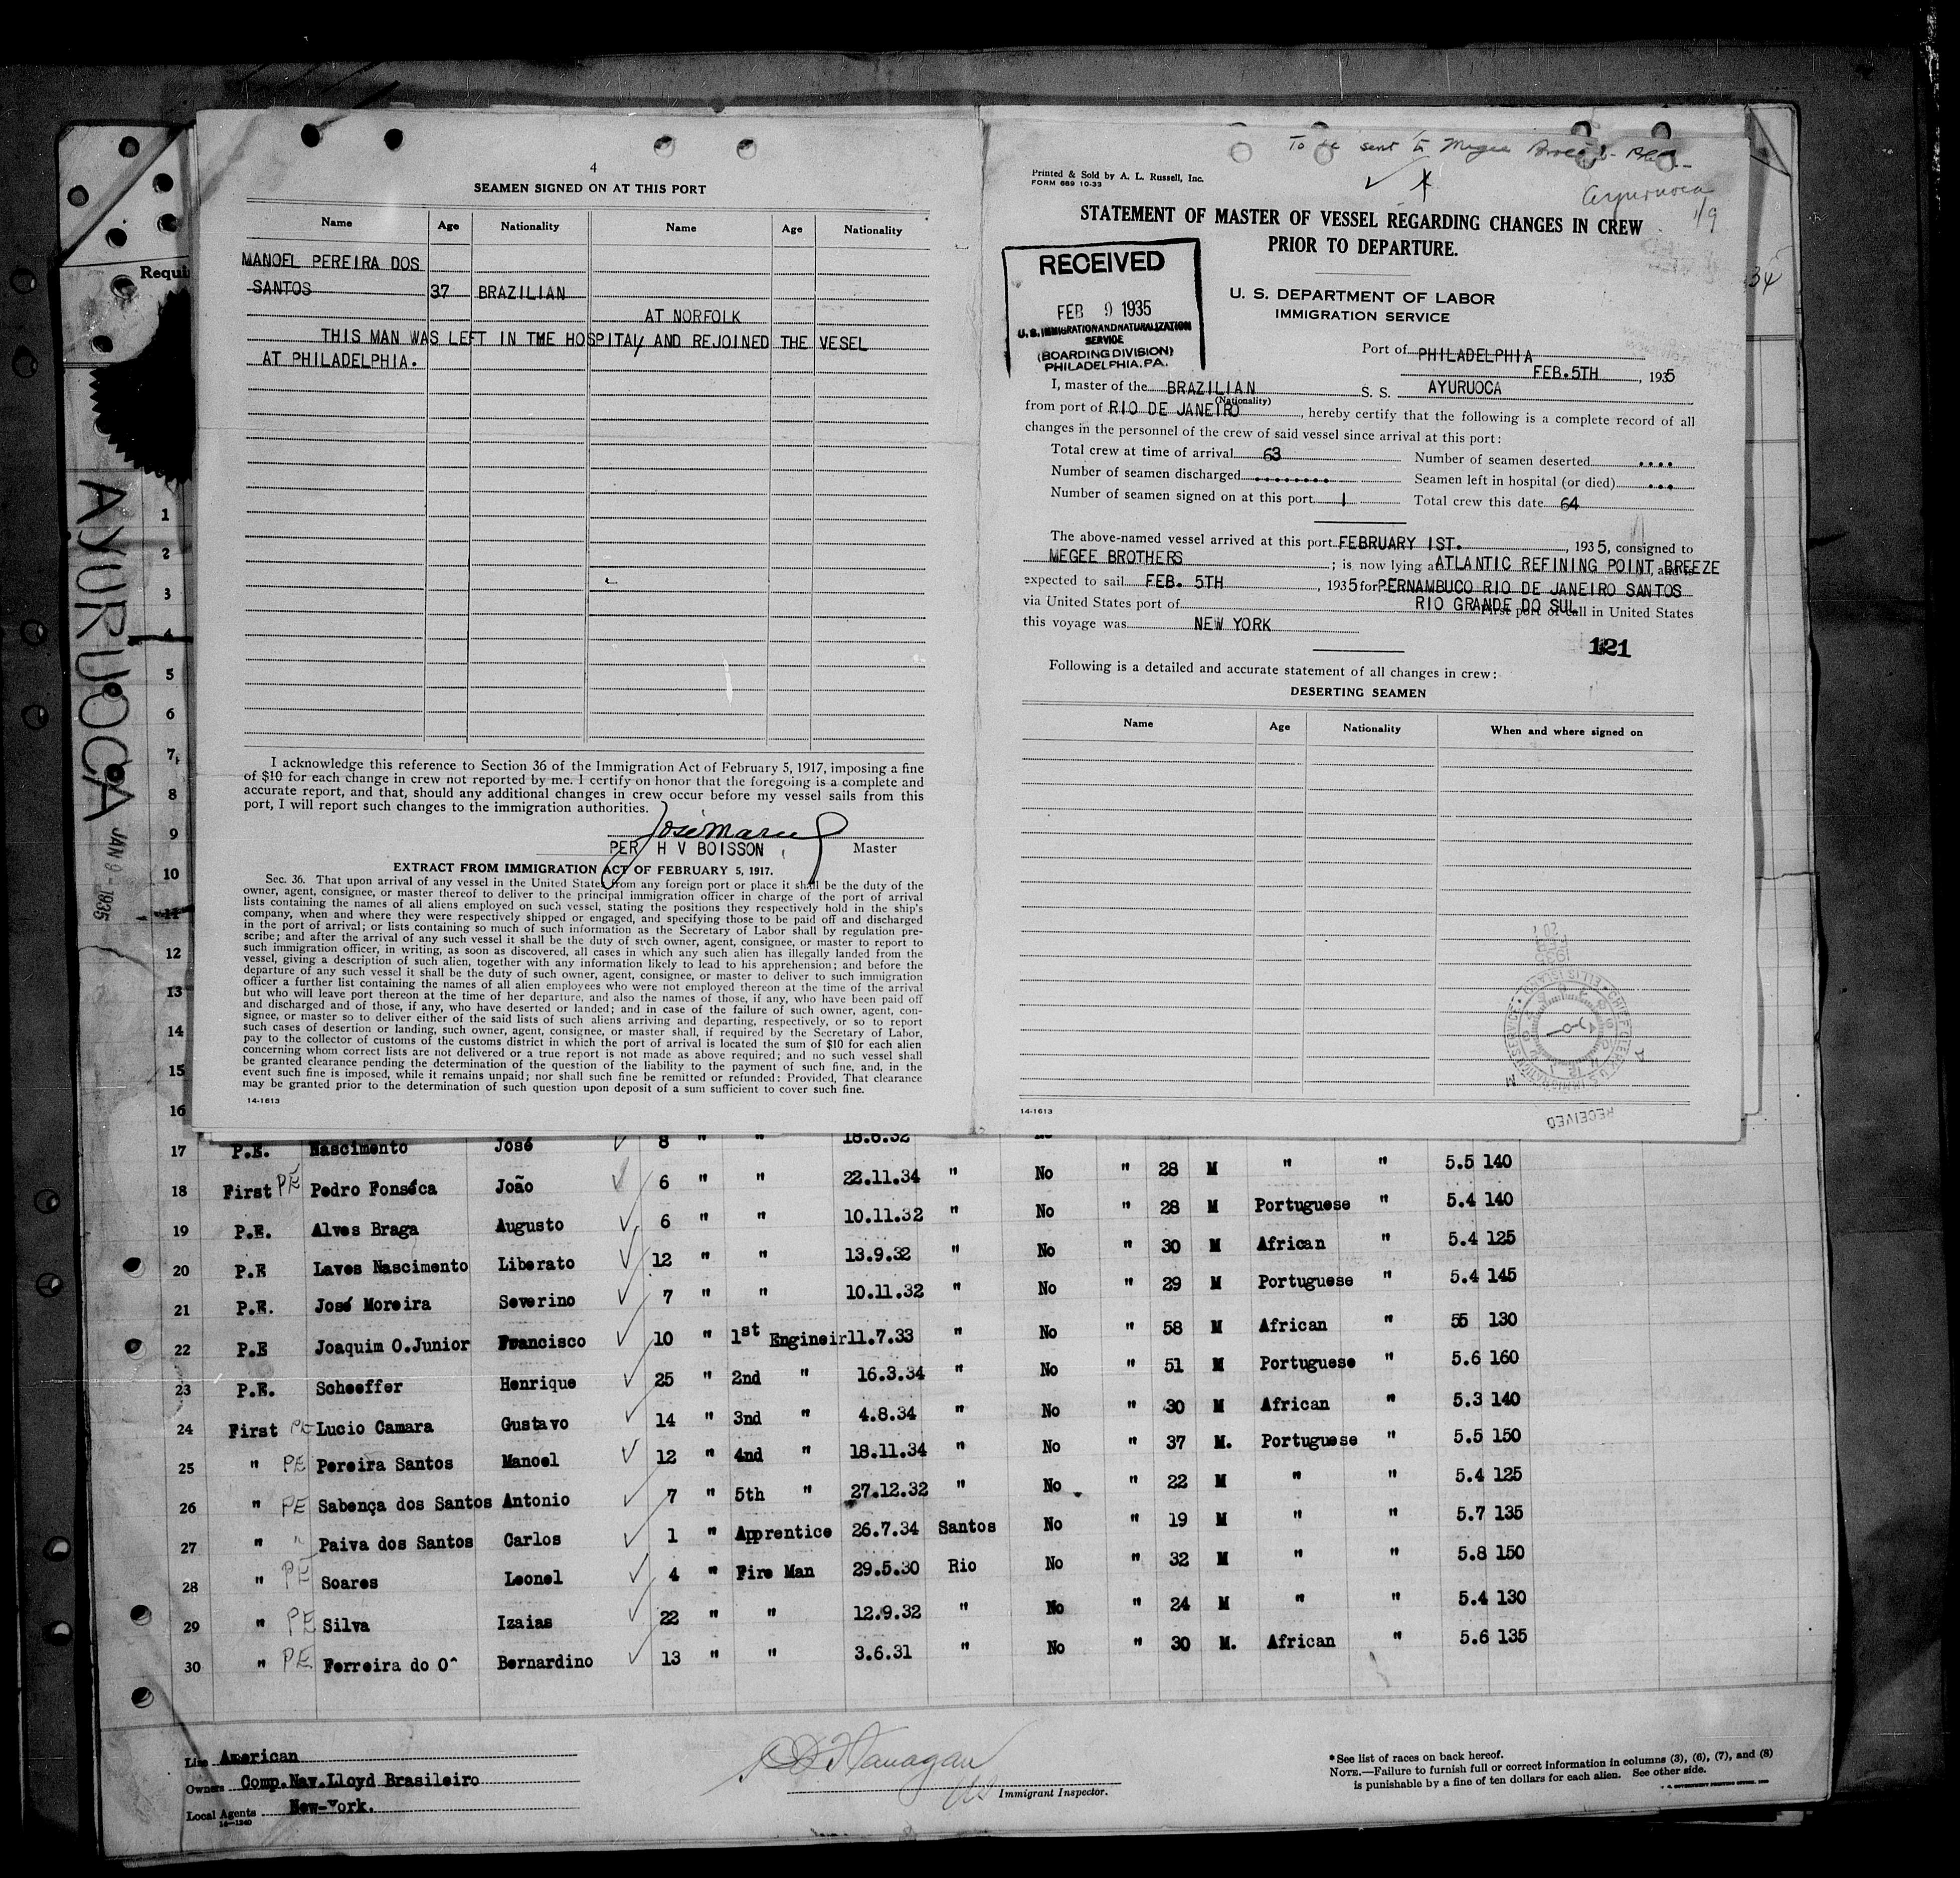 4
SEAMEN SIGNED ON AT THIS PORT
Name Age Nationality Name Age Nationality
MANOEL PEREIRA DOS
SANTOS 37 BRAZILIAN
AT NORFOLK
THIS MAN WAS LEFT IN THE HOSPITAL AND REJOINED THE VESEL
AT PHILADELPHIA.
I acknowledge this reference to Section 36 of the Immigration Act of February 5, 1917, imposing a fine
of $10 for each change in crew not reported by me. I certify on honor that the foregoing is a complete and
accurate report, and that, should any additional changes in crew occur before my vessel sails from this
port, I will report such changes to the immigration authorities.
PER H V BOISSON Master
EXTRACT FROM IMMIGRATION ACT OF FEBRUARY 5, 1917.
Sec. 36. That upon arrival of any vessel in the United States from any foreign port or place it shall be the duty of the
owner, agent, consignee, or master thereof to deliver to the principal immigration officer in charge of the port of arrival
lists containing the names of all aliens employed on such vessel, stating the positions they respectively hold in the ship's
company, when and where they were respectively shipped or engaged, and specifying those to be paid off and discharged
in the port of arrival; or lists containing so much of such information as the Secretary of Labor shall by regulation pre-
scribe; and after the arrival of any such vessel it shall be the duty of such owner, agent, consignee, or master to report to
such immigration officer, in writing, as soon as discovered, all cases in which any such alien has illegally landed from the
vessel, giving a description of such alien, together with any information likely to lead to his apprehension; and before the
departure of any such vessel it shall be the duty of such owner, agent, consignee, or master to deliver to such immigration
officer a further list containing the names of all alien employees who were not employed thereon at the time of the arrival
but who will leave port thereon at the time of her departure, and also the names of those, if any, who have been paid off
and discharged and of those, if any, who have deserted or landed; and in case of the failure of such owner, agent, con-
signee, or master so to deliver either of the said lists of such aliens arriving and departing, respectively, or so to report
such cases of desertion or landing, such owner, agent, consignee, or master shall, if required by the Secretary of Labor,
pay to the collector of customs of the customs district in which the port of arrival is located the sum of $10 for each alien
concerning whom correct lists are not delivered or a true report is not made as above required; and no such vessel shall
be granted clearance pending the determination of the question of the liability to the payment of such fine, and, in the
event such fine is imposed, while it remains unpaid; nor shall such fine be remitted or refunded: Provided, That clearance
may be granted prior to the determination of such question upon deposit of a sum sufficient to cover such fine.
14-1613
To be sent to Megee
Ayuruoca
1/9
Printed & Sold by A. L. Russell, Inc.
FORM 689 10-33
STATEMENT OF MASTER OF VESSEL REGARDING CHANGES IN CREW
PRIOR TO DEPARTURE.
RECEIVED
FEB 9 1935
U. S. IMMIGRATION AND NATURALIZATION
SERVICE
(BOARDING DIVISION)
PHILADELPHIA, PA.
U. S. DEPARTMENT OF LABOR
IMMIGRATION SERVICE
Port of PHILADELPHIA
FEB.5TH, 1935
I, master of the BRAZILIAN S. S. AYURUOCA
(Nationality)
from port of RIO DE JANEIRO, hereby certify that the following is a complete record of all
changes in the personnel of the crew of said vessel since arrival at this port:
Total crew at time of arrival 63 Number of seamen deserted ....
Number of seamen discharged ........ Seamen left in hospital (or died) ...
Number of seamen signed on at this port 1 Total crew this date 64
The above-named vessel arrived at this port FEBRUARY 1ST., 1935, consigned to
MEGEE BROTHERS; is now lying at ATLANTIC REFINING POINT BREEZE and is
expected to sail FEB. 5TH, 1935 for PERNAMBUCO RIO DE JANEIRO SANTOS
RIO GRANDE DO SUL
via United States port of First port of call in United States
this voyage was NEW YORK
121
Following is a detailed and accurate statement of all changes in crew:
DESERTING SEAMEN
Name Age Nationality When and where signed on
RECEIVED
14-1613
34
Requi
AYURUOCA
JAN 9 - 1935
1
2
3
4
5
6
7
8
9
10
11
12
13
14
15
16
17 P.E. Nascimento José 8 " " 18.6.32 No " 28 M " " 5.5 140
18 First PE Pedro Fonséca João 6 " " 22.11.34 " No " 28 M Portuguese " 5.4 140
19 P.E. Alves Braga Augusto 6 " " 10.11.32 " No " 30 M African " 5.4 125
20 P.E Laves Nascimento Liberato 12 " " 13.9.32 " No " 29 M Portuguese " 5.4 145
21 P.E. José Moreira Severino 7 " " 10.11.32 " No " 58 M African " 55 130
22 P.E Joaquim O.Junior Francisco 10 " 1st Engineir 11.7.33 " No " 51 M Portuguese " 5.6 160
23 P.E. Scheeffer Henrique 25 " 2nd " 16.3.34 " No " 30 M African " 5.3 140
24 First PE Lucio Camara Gustavo 14 " 3nd " 4.8.34 " No " 37 M. Portuguese " 5.5 150
25 " PE Pereira Santos Manoel 12 " 4nd " 18.11.34 " No " 22 M " " 5.4 125
26 " PE Sabença dos Santos Antonio 7 " 5th " 27.12.32 " No " 19 M " " 5.7 135
27 " " Paiva dos Santos Carlos 1 " Apprentice 26.7.34 Santos No " 32 M " " 5.8 150
28 " PE Soares Leonel 4 " Fire Man 29.5.30 Rio No " 24 M " " 5.4 130
29 " PE Silva Izaias 22 " " 12.9.32 " No " 30 M. African " 5.6 135
30 " PE Ferreira do Oˆ Bernardino 13 " " 3.6.31 " No
Line American
Owners Comp.Nav.Lloyd Brasileiro
Local Agents New-York.
14-1240
Immigrant Inspector.
*See list of races on back hereof.
NOTE.—Failure to furnish full or correct information in columns (3), (6), (7), and (8)
is punishable by a fine of ten dollars for each alien. See other side.